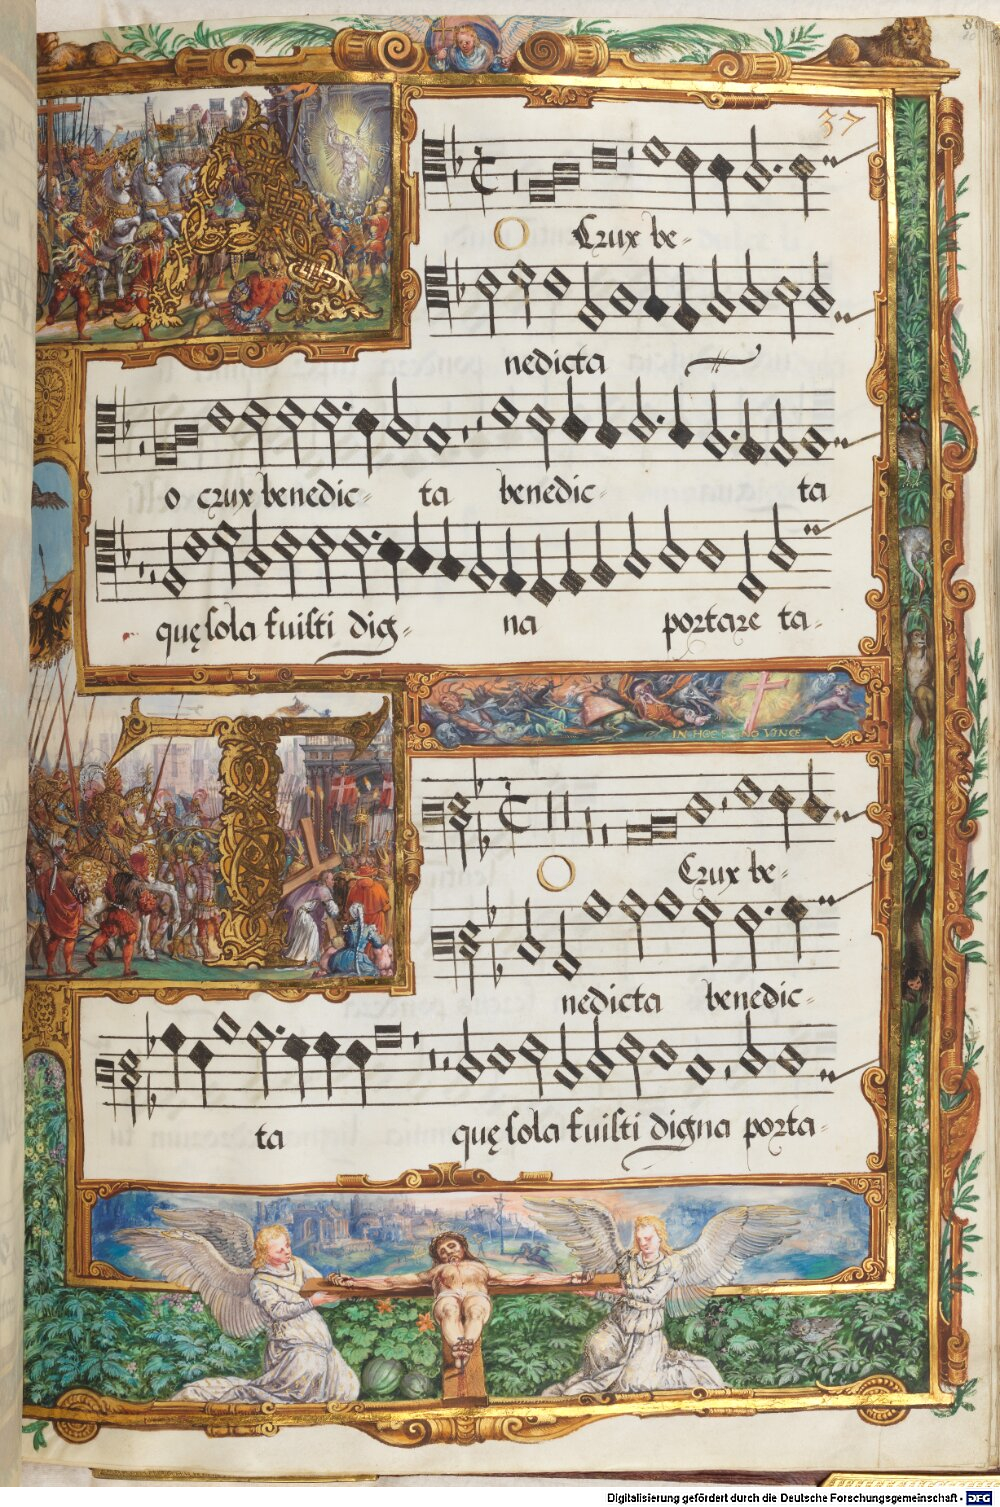 37
A
O Crux be-
nedicta
o crux benedic- ta benedic- ta
quę sola fuisti dig- na portare ta-
IN HOC SIGNO VINCE
T
O Crux be-
nedicta benedic-
ta quę sola fuisti digna porta-
Digitalisierung gefördert durch die Deutsche Forschungsgemeinschaft - DFG